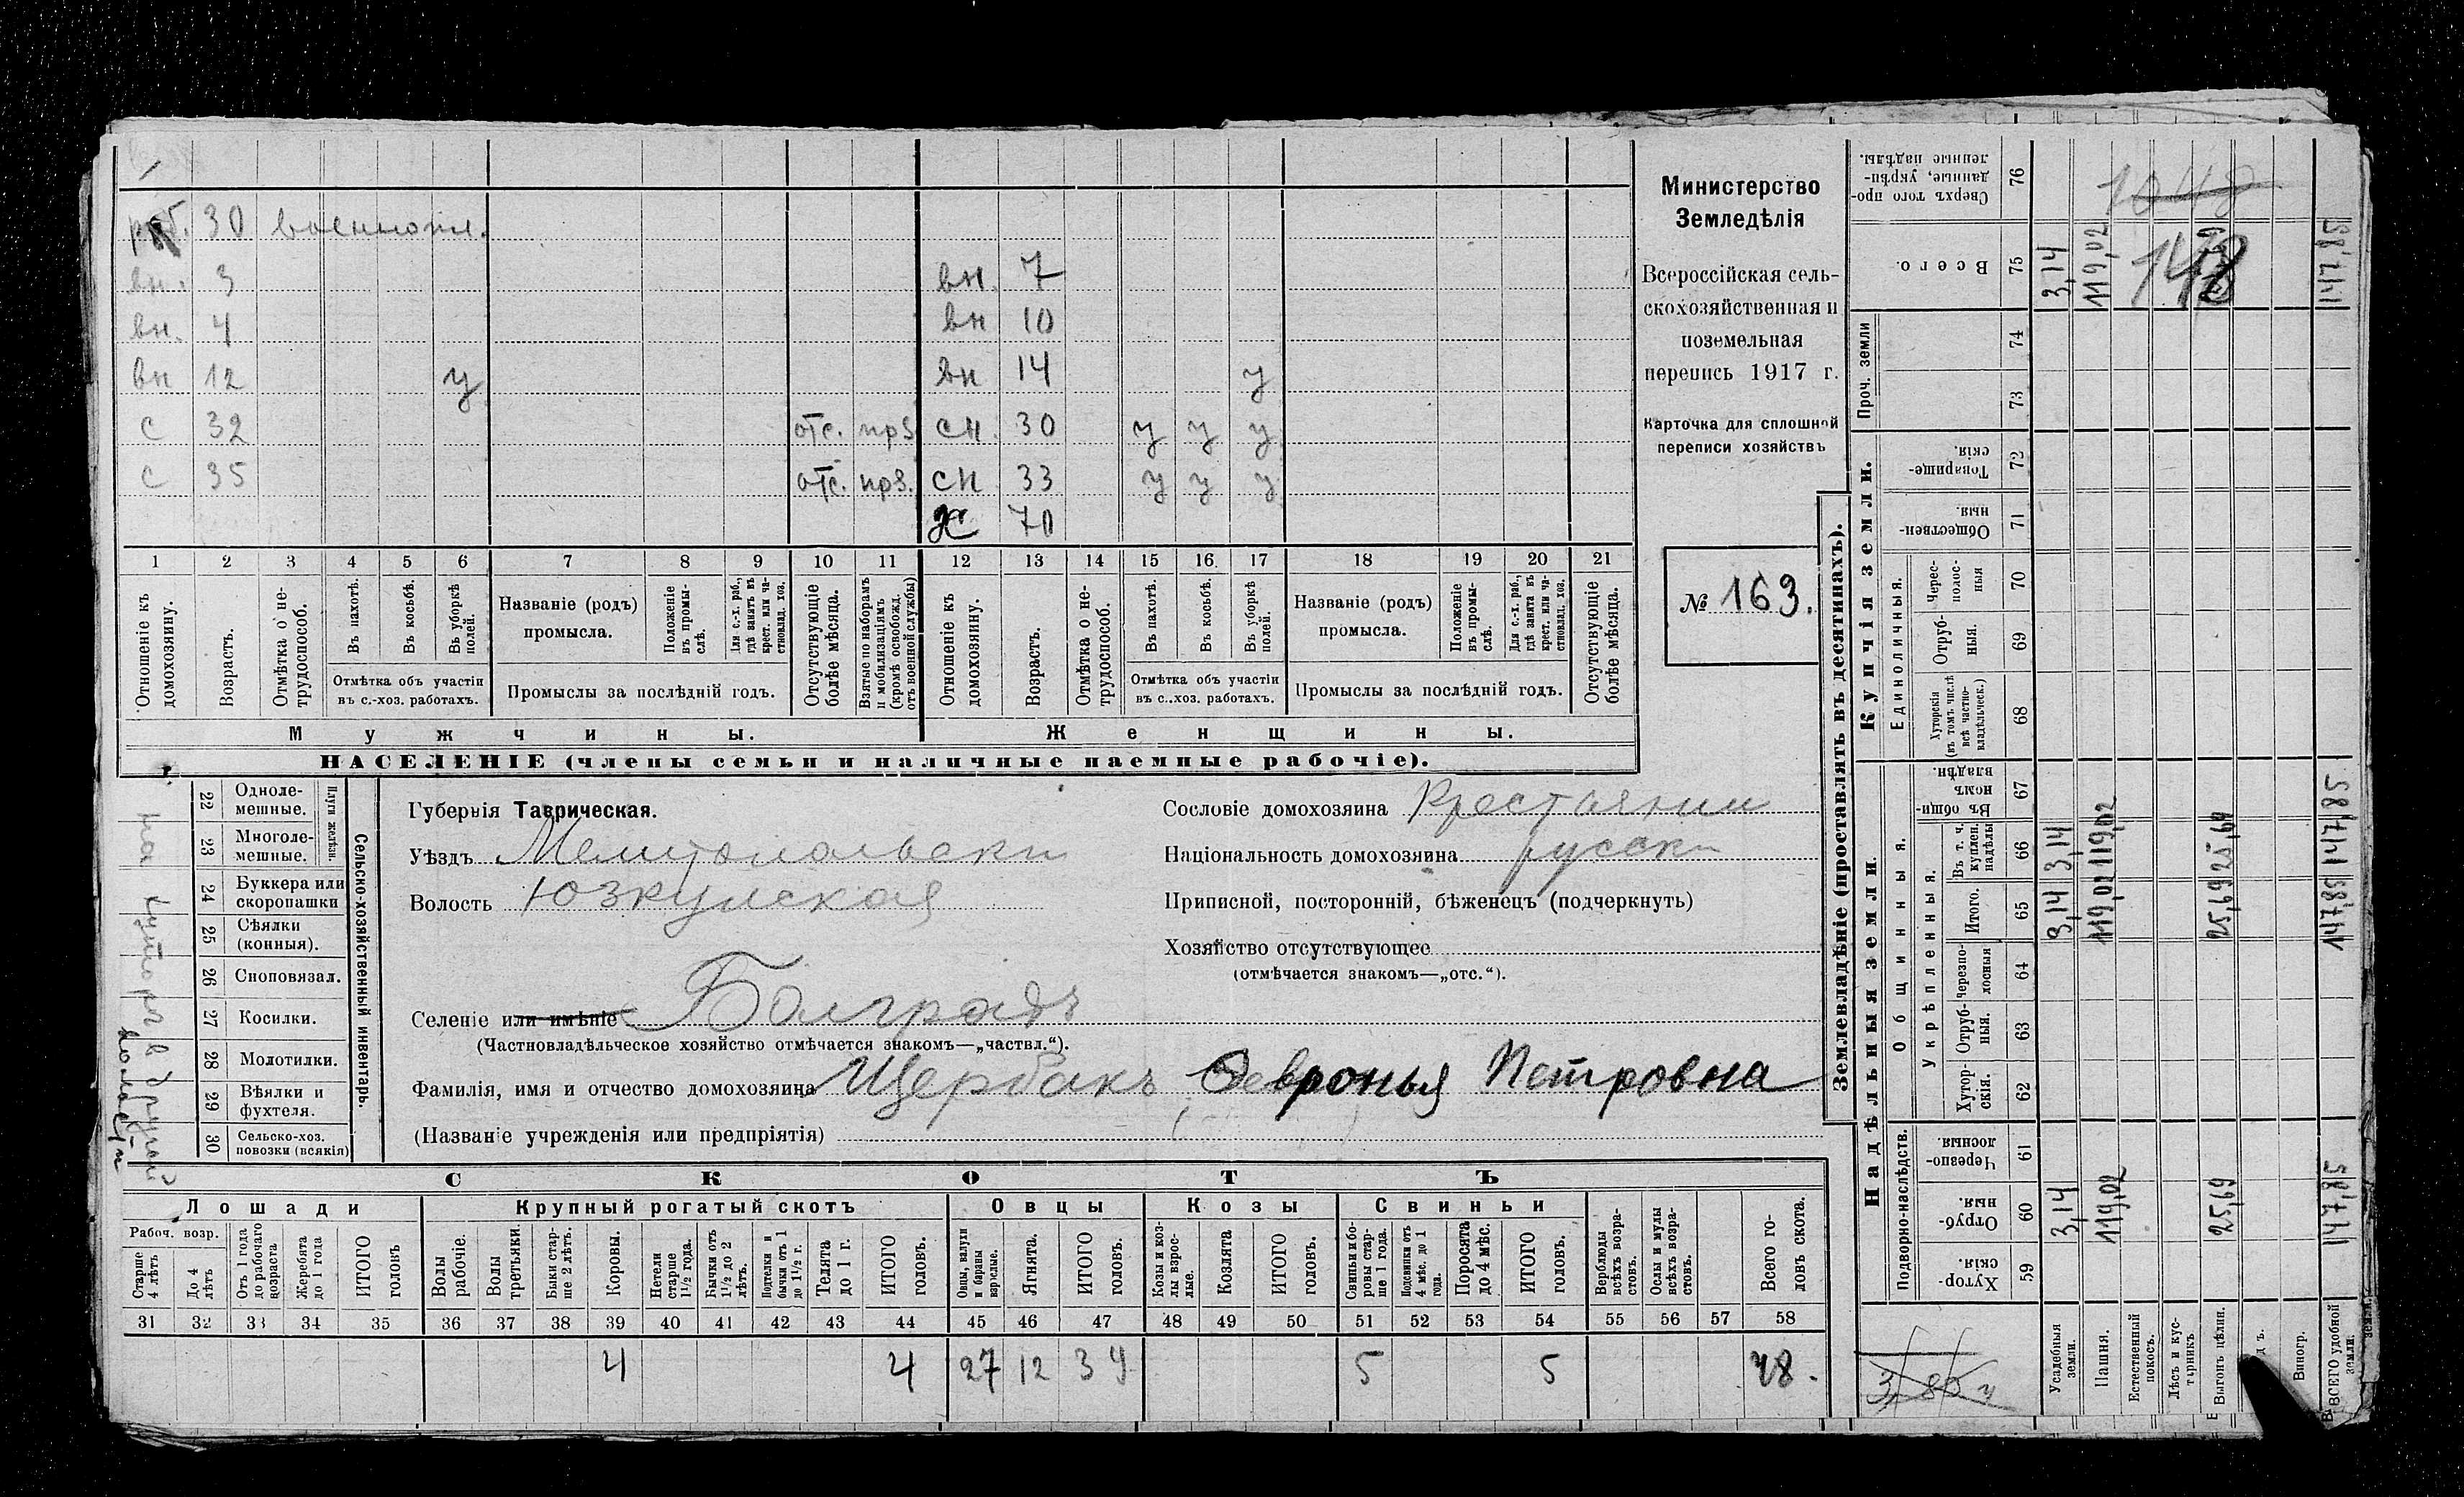 раб. 30 военнопл.
вн. 3 вн. 7
вн. 4 вн 10
вн 12 у вн 14 у
с 32 отс. прз сн. 30 у у у
с 35 отс. прз. сн 33 у у у
ж 70
1 2 3 4 5 6 7 8 9 10 11 12 13 14 15 16 17 18 19 20 21
Отношеніе къ домохозяину.
Возрастъ.
Отмѣтка о не-
трудоспособ.
Въ пахотѣ.
Въ косьбѣ.
Въ уборкѣ
полей.
Отмѣтка объ участіи
въ с.-хоз. работахъ.
Названіе (родъ)
промысла.
Положеніе
въ промы-
слѣ.
Для с.-х. раб.,
гдѣ занятъ въ
крест. или ча-
стновлад. хоз.
Промыслы за послѣдній годъ.
Отсутствующіе
болѣе мѣсяца.
Взятые по наборамъ
и мобилизаціямъ
(кромѣ освобожд.
отъ военной службы)
Отношеніе къ
домохозяину.
Возрастъ.
Отмѣтка о не-
трудоспособ.
Въ пахотѣ.
Въ косьбѣ.
Въ уборкѣ
полей.
Отмѣтка объ участіи
въ с..хоз. работахъ.
Названіе (родъ)
промысла.
Положеніе
въ промы-
слѣ.
Для с.-х. раб.,
гдѣ занята въ
крест. или ча-
стновлад. хоз.
Промыслы за послѣдній годъ.
Отсутствующіе
болѣе мѣсяца.
Мужчины.
Женщины.
НАСЕЛЕНІЕ (члены семьи и наличные наемные рабочіе).
Министерство
Земледѣлія
Всероссійская сель-
скохозяйственная и
поземельная
перепись 1917 г.
Карточка для сплошной
переписи хозяйствъ
№ 163.
22 Одноле-
мешные.
23 Многоле-
мешные.
Плуги желѣзн.
24 Буккера или
скоропашки
25 Сѣялки
(конныя).
26 Сноповязал.
27 Косилки.
28 Молотилки.
29 Вѣялки и
фухтеля.
30 Сельско-хоз.
повозки (всякія)
Сельско-хозяйственный инвентарь.
на хуторѣ в другой
волости
Губернія Таврическая.
Уѣздъ Мелитопольски
Волость Юзкуйская
Селеніе или имѣніе Болградъ
(Частновладѣльческое хозяйство отмѣчается знакомъ—„частвл.“).
Фамилія, имя и отчество домохозяина Щербакъ Февронья Петровна
(Названіе учрежденія или предпріятія)
Сословіе домохозяина Крестьянин
Національность домохозяина русски
Приписной, посторонній, бѣженецъ (подчеркнуть)
Хозяйство отсутствующее
(отмѣчается знакомъ—„отс.“).
СКОТЪ
Лошади Крупный рогатый скотъ Овцы Козы Свиньи
Рабоч. возр.
Старше
4 лѣтъ
До 4
лѣтъ
Отъ 1 года
до рабочаго
возраста
Жеребята
до 1 года
ИТОГО
головъ
Волы
рабочіе.
Волы
третьяки.
Быки стар-
ше 2 лѣтъ.
Коровы.
Нетели
старше
1½ года.
Бычки отъ
1½ до 2
лѣтъ.
Подтелки и
бычки отъ 1
до 1½ г.
Телята
до 1 г.
ИТОГО
головъ.
Овцы, валухи
и бараны
взрослые.
Ягнята.
ИТОГО
головъ.
Козы и коз-
лы взрос-
лые.
Козлята
ИТОГО
головъ.
Свиньи и бо-
ровы стар-
ше 1 года.
Подсвинки отъ
4 мѣс. до 1
года.
Поросята
до 4 мѣс.
ИТОГО
головъ.
Верблюды
всѣхъ возра-
стовъ.
Ослы и мулы
всѣхъ возра-
стовъ.
Всего го-
ловъ скота.
31 32 33 34 35 36 37 38 39 40 41 42 43 44 45 46 47 48 49 50 51 52 53 54 55 56 57 58
4 4 27 12 39 5 5 48.
Землевладѣніе (проставлять въ десятинахъ).
Надѣльныя земли.
Купчія земли.
Проч. земли
Подворно-наслѣдств.
Общинныя.
Укрѣпленныя.
Единоличныя.
Сверхъ того про-
данные, укрѣп-
ленные надѣлы. 76
Всего. 75
74
73
Товарище-
скія. 72
Обществен-
ныя. 71
Черес-
полос-
ныя 70
Отруб-
ныя. 69
Хуторскія
(въ томъ числѣ
всѣ частно-
владѣльческ.) 68
Въ общи-
номъ
владѣн. 67
Въ т. ч.
куплен.
надѣлы 66
Итого. 65
Черезпо-
лосныя 64
Отруб-
ныя. 63
Хутор-
скія. 62
Черезпо-
лосныя. 61
Отруб-
ныя. 60
Хутор-
скія. 59
Усадебныя
земли.
Пашня.
Естественный
покосъ.
Лѣсъ и кус-
тарникъ
Выгонъ цѣлин.
Виногр.
ВСЕГО удобной
земли.
3,14 119,02 148 147,85
3,14 119,02 25,69 147,85
3,14 119,02 25,69 147,85
3,14 119,02 25,69 147,85